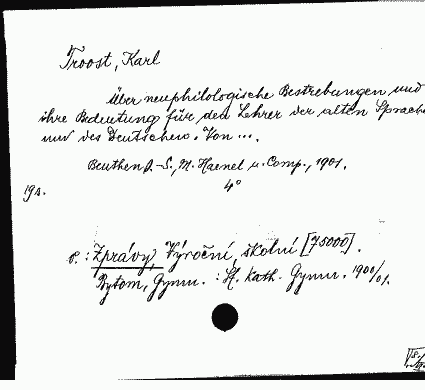 Troost, Karl
Über neuphilologische Bestrebungen und
ihre Bedeutung für den Lehrer der alten Sprachen
und des Deutschen. Von ...
Beuthen O.-S., M. Haenel u. Comp., 1901.
19 s. 4°
P.: Zprávy, Výroční, školní [75000].
Bytom, Gymn. : St. Kath. Gymn. 1900/01.